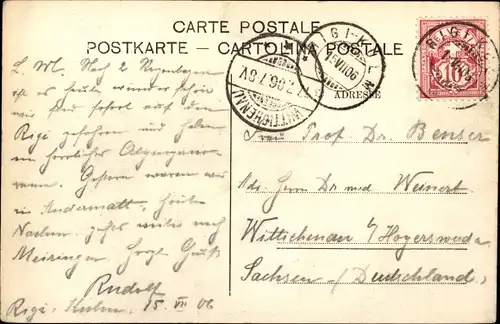 CARTE POSTALE
POSTKARTE – CARTOLINA POSTALE
RIGI-KULM
15.VII.06
RIGI-KULM
10
WITTICHENAU
17.7.06. 7-8V
ADRESSE
L. M. Nach 2 Regentagen
ist es heute wunderschön
wir sind sofort auf den
Rigi gefahren und haben
ein herrliches Alpenpano-
rama. Gestern waren wir
in Andermatt, heute
gehts weiter nach
Meiringen. Hrzl. Gruß
Rudolf
Rigi, Kulm 15 VII 06
Frau Prof. Dr. Benser
Adr. Herrn Dr. med. Weinert
Wittichenau b/ Hoyerswerda
Sachsen / Deutschland.